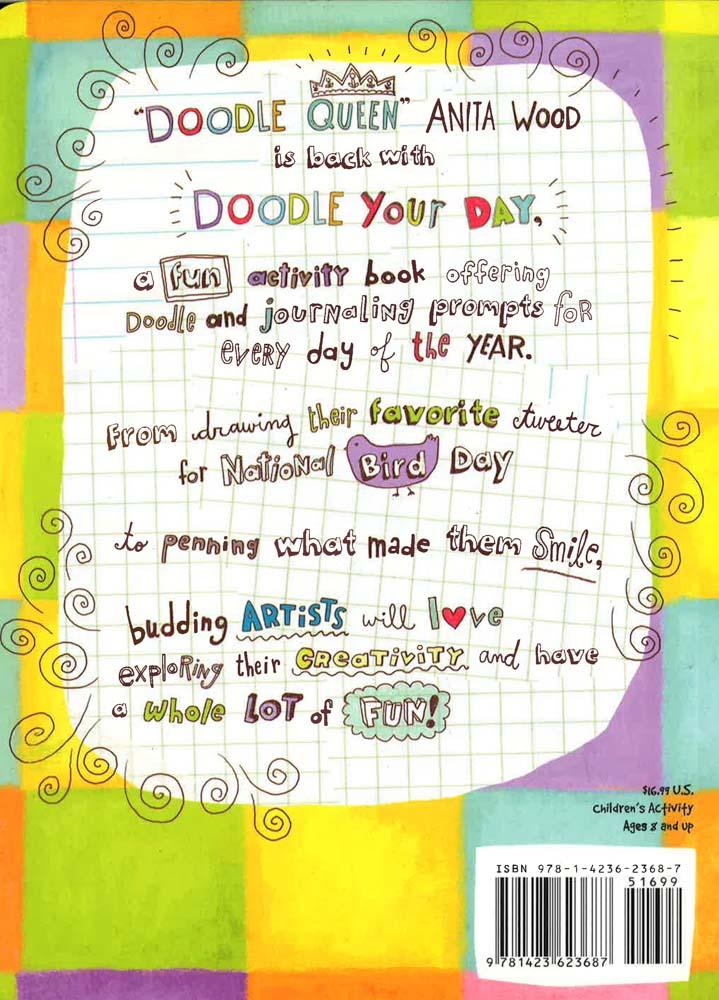 "DOODLE QUEEN" ANITA WOOD
is back with
DOODLE YOUR DAY,
a fun activity book offering
Doodle and journaling prompts foR
eveRY day of the YEAR.
From drawing their favorite tweeter
for National Bird Day
to penning what made them Smile,
budding ARTISTS will love
exploRing their CReaTiViTY and have
a whole LOT of FUN!
$16.99 U.S.
Children's Activity
Ages 8 and up
ISBN 978-1-4236-2368-7
51699
9 781423 623687